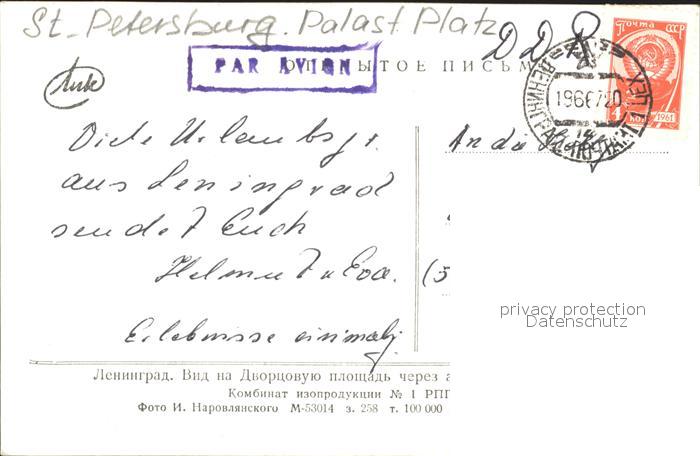 St. Petersburg. Palast Platz
PAR AVION
ОТКРЫТОЕ ПИСЬМО
DDR
ПОЧТА СССР
4
КОП
1961
Die Urlaubsgr.
aus Leningrad
sendet Euch
Helmut u Eva.
Erlebnisse einmalig
An die
(5
privacy protection
Datenschutz
Ленинград. Вид на Дворцовую площадь через а
Комбинат изопродукции № 1 РПГ
Фото И. Наровлянского М-53014 з. 258 т. 100 000